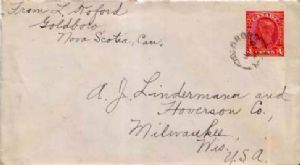 From L Noford
Goldboro
Nova Scotia, Can.
CANADA
A. J. Lindermana and
Hoverson Co.,
Milwaukee,
Wis.
U.S.A.